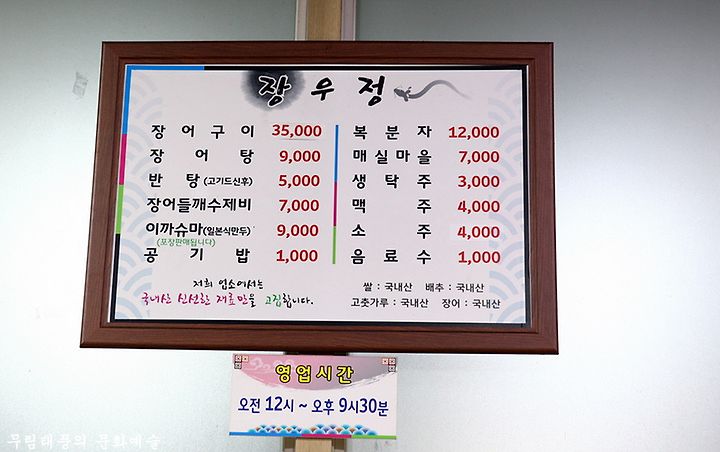 장우정
장어구이 35,000
장어탕 9,000
반탕(고기드신후) 5,000
장어들깨수제비 7,000
이까슈마(일본식만두) 9,000
(포장판매됩니다)
공기밥 1,000
복분자 12,000
매실마을 7,000
생탁주 3,000
맥주 4,000
소주 4,000
음료수 1,000
저희 업소에서는
국내산 신선한 재료만을 고집합니다.
쌀 : 국내산 배추 : 국내산
고춧가루 : 국내산 장어 : 국내산
영업시간
오전 12시 ~ 오후 9시30분
무림태풍의 문화예술